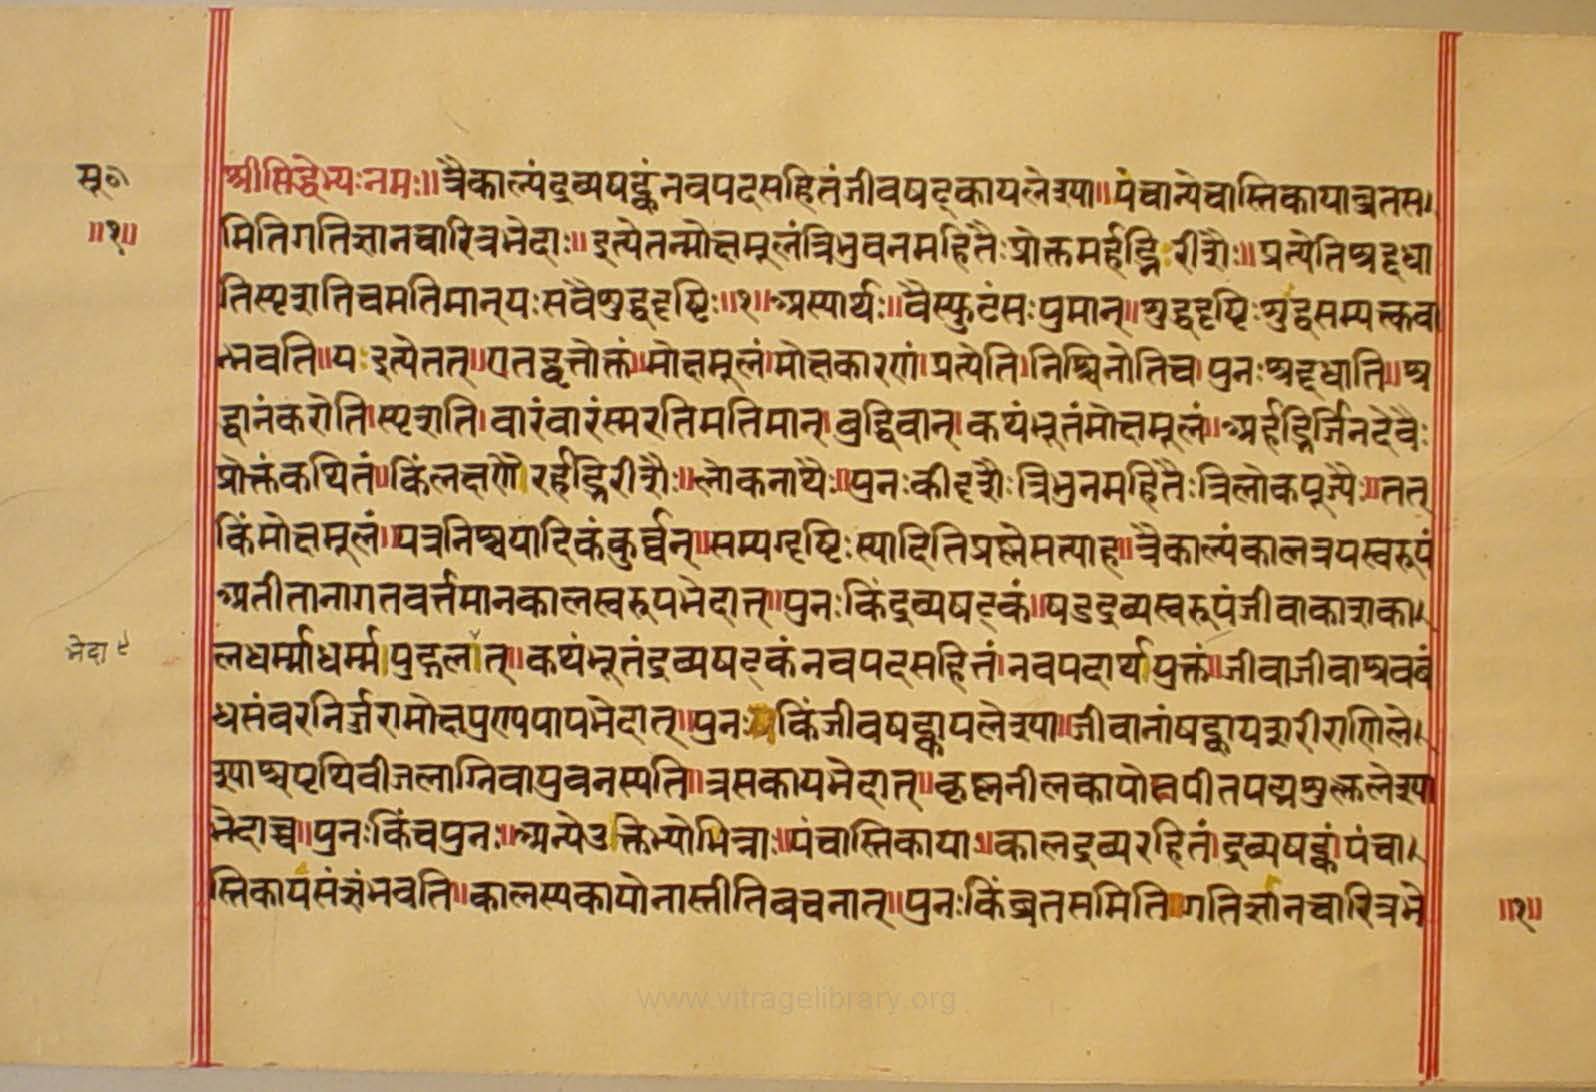 सू०
॥१॥
श्रीसिद्धेभ्यःनमः॥त्रैकाल्यंद्रव्यषट्कंनवपदसहितंजीवषट्कायलेश्या॥पंचान्येचास्तिकायाव्रतस।
मितिगतिज्ञानचारित्रभेदाः॥इत्येतन्मोक्षमूलंत्रिभुवनमहितैःप्रोक्तमर्हद्भिरीशैः॥प्रत्येतिश्रद्दधा
तिस्पृशतिचमतिमान्यःसवैशुद्धदृष्टिः॥१॥अस्यार्थः॥वैस्फुटंसःपुमान्॥शुद्धदृष्टिःशुद्धसम्यक्त्कवा
न्भवति॥यःइत्येतत्॥एतद्वृत्तोक्तं॥मोक्षमूलं।मोक्षकारणं।प्रत्येति।निश्चिनोतिच।पुनःश्रद्दधाति॥श्र
द्धानंकरोति।स्पृशति।वारंवारंस्मरतिमतिमान्।बुद्धिवान्।कथंभूतंमोक्षमूलं॥अर्हद्भिर्जिनदेवैः
प्रोक्तंकथितं॥किंलक्षणैरर्हद्भिरीशैः॥लोकनाथैः॥पुनःकीदृशैःत्रिभुनमहितैःत्रिलोकपूज्यैः॥तत्
किंमोक्षमूलं॥यत्रनिश्चयादिकंकुर्व्वन्॥सम्यग्दृष्टिःस्यादितिप्रश्नेमत्याह॥त्रैकाल्यंकालत्रयस्वरुपं
अतीतानागतवर्त्तमानकालस्वरुपभेदात्॥पुनःकिंद्रव्यषट्कं॥षडद्रव्यस्वरुपंजीवाकाशका।
लधर्म्माधर्म्म।पुद्गलात्॥कथंभूतंद्रव्यषट्कंनवपदसहितं।नवपदार्थयुक्तं॥जीवाजीवाश्रवबं
धसंवरनिर्ज्जरामोक्षपुण्यपापभेदात्॥पुनःकिंजीवषट्कायलेश्या॥जीवानांषट्कायशरीराणिले।
श्याश्चपृथिवीजलाग्निवायुवनस्पति॥त्रसकायभेदात्॥कृष्णनीलकापोतपीतपद्मशुक्ललेश्या
भेदाच्च॥पुनःकिंचपुनः॥अन्येउक्तेभ्योभिन्नाः॥पंचास्तिकायाः॥कालद्रव्यरहितं।द्रव्यषट्कं।पंचा।
स्तिकायसंज्ञंभवति॥कालस्यकायोनास्तीतिवचनात्॥पुनःकिंव्रतसमिति॥गतिर्ज्ञानचारित्रभे
भेदा ९
॥१॥
www.vitragelibrary.org